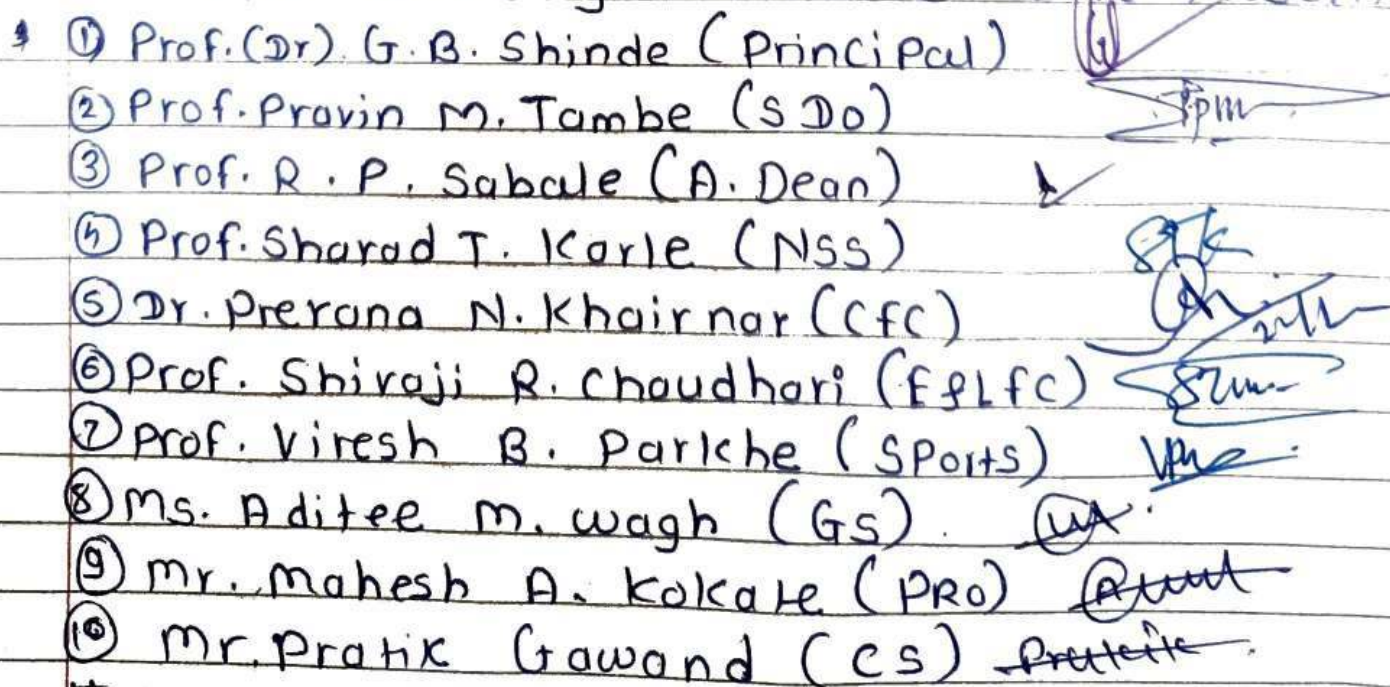 ① Prof. (Dr). G. B. Shinde (Principal)
② Prof. Pravin M. Tambe (SDO)
③ Prof. R. P. Sabale (A. Dean)
④ Prof. Sharad T. Karle (NSS)
⑤ Dr. Prerana N. Khairnar (CFC)
⑥ Prof. Shivaji R. Chaudhari (F&LFC)
⑦ Prof. Viresh B. Parkhe (Sports)
⑧ Ms. Aditee M. Wagh (GS).
⑨ Mr. Mahesh A. Kokate (PRO)
⑩ Mr. Pratik Gawand (CS) Prateik